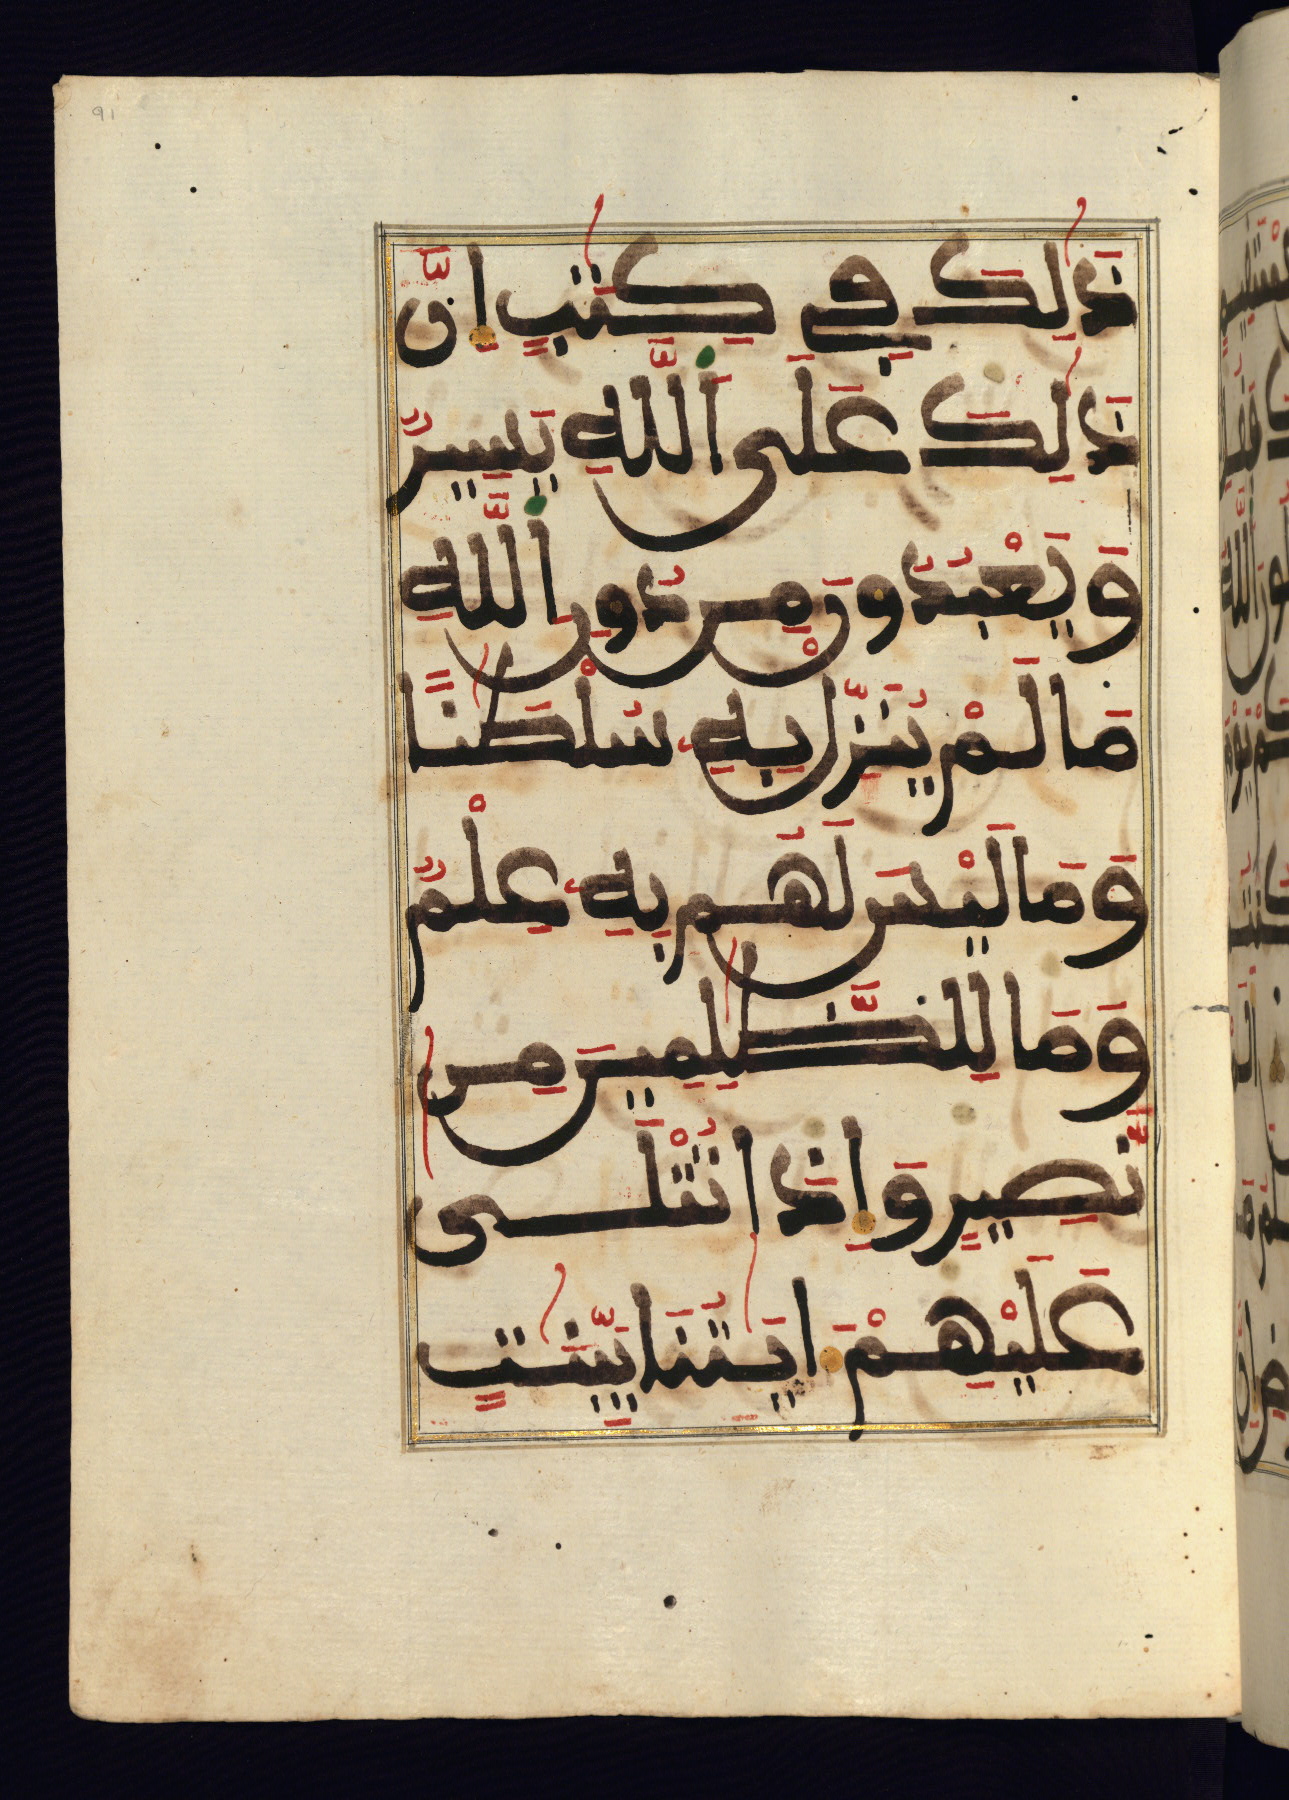 ذَٰلِكَ فِي كِتَٰبٍ اِنَّ
ذَٰلِكَ عَلَى اَ۬للَّهِ يَسِيرٌ
وَيَعْبُدُونَ مِن دُونِ اِ۬للَّهِ
مَا لَمْ يُنَزِّلْ بِهِۦ سُلْطَٰنًا
وَمَا لَيْسَ لَهُم بِهِۦ عِلْمٌ
وَمَا لِلظَّٰلِمِينَ مِن
نَّصِيرٍ وَإِذَا تُتْلَىٰ
عَلَيْهِمُۥٓ ءَايَٰتُنَا بَيِّنَٰتٍ
91